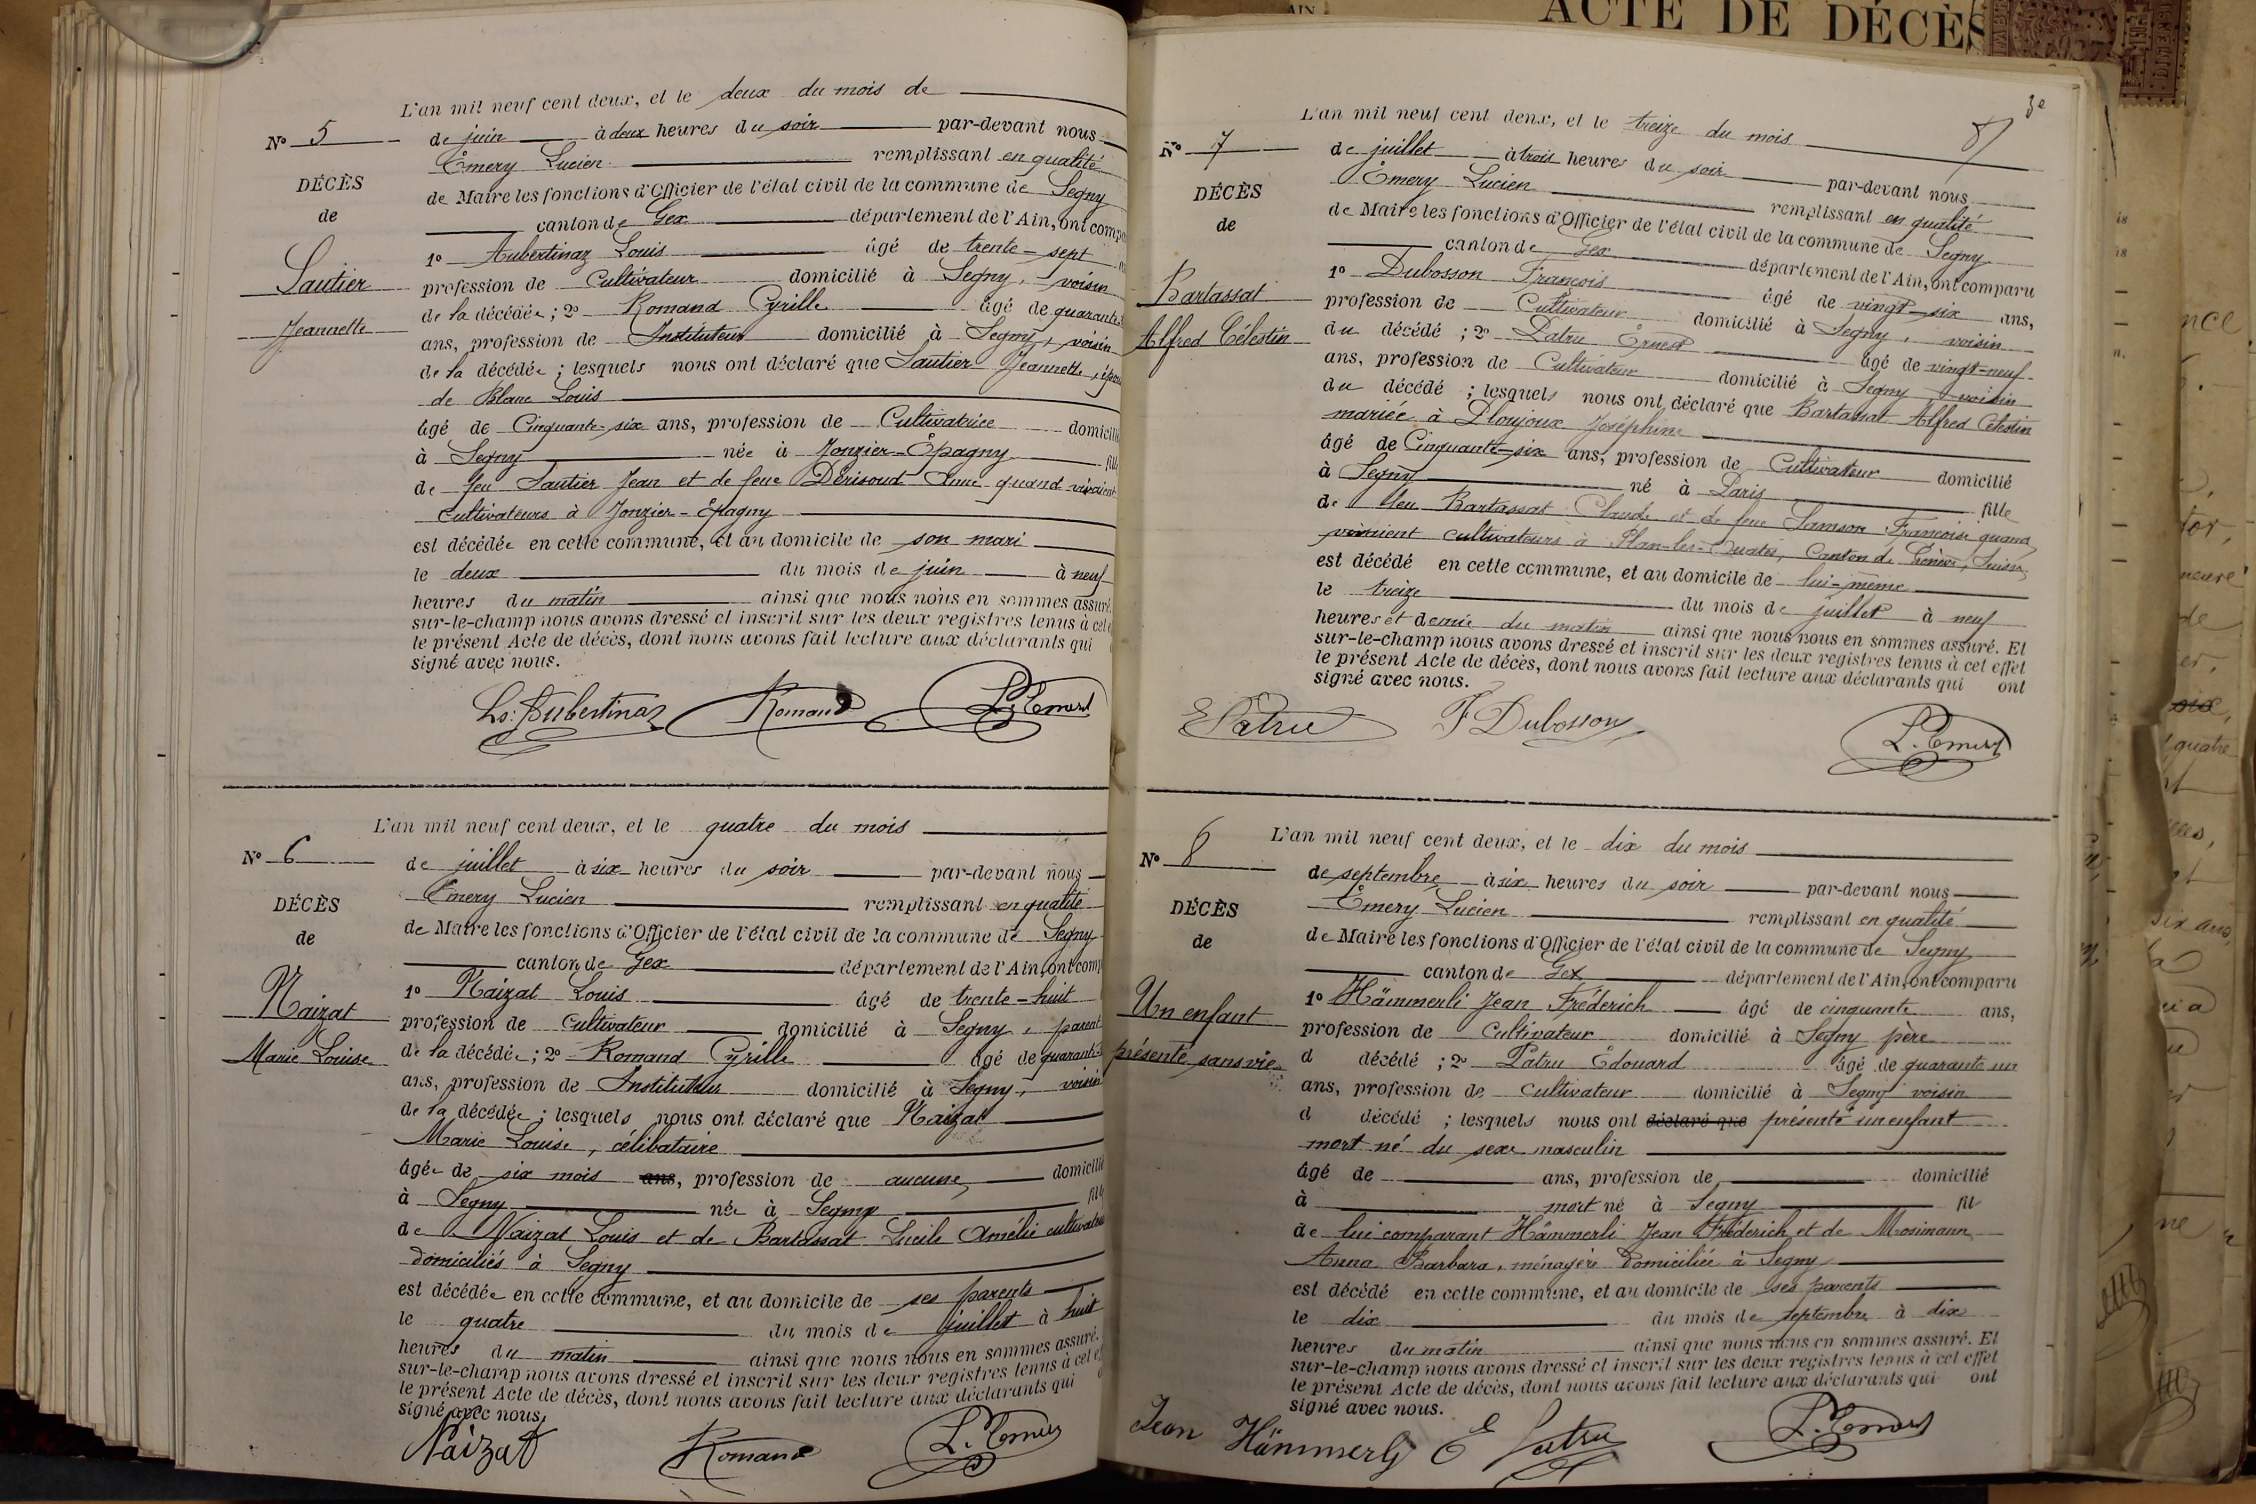 ACTE DE DÉCÈS
L'an mil neuf cent deux, et le deux du mois de
N° 5
de juin à deux heures du soir par-devant nous
Émery Lucien remplissant en qualité
DÉCÈS
de Maire les fonctions d'Officier de l'état civil de la commune de Segny
de
canton de Gex département de l'Ain, ont comp
1° Aubertinaz Louis âgé de trente-sept
Sautier
profession de Cultivateur domicilié à Segny, voisin
de la décédée; 2° Romand Cyrille âgé de quarante
Jeannette
ans, profession de Instituteur domicilié à Segny, voisin
de la décédée; lesquels nous ont déclaré que Sautier Jeannette,
de Blanc Louis
âgé de Cinquante-six ans, profession de Cultivatrice domicilié
à Segny née à Jonzier-Épagny fille
de feu Sautier Jean et de feue Dérisoud quand vivaient
cultivateurs à Jonzier-Épagny
est décédée en cette commune, et au domicile de son mari
le deux du mois de juin à neuf
heures du matin ainsi que nous nous en sommes assuré.
sur-le-champ nous avons dressé et inscrit sur les deux registres tenus à cet
le présent Acte de décès, dont nous avons fait lecture aux déclarants qui
signé avec nous.
Ls. Aubertinaz Romand L. Emery
L'an mil neuf cent deux, et le quatre du mois
N° 6
de juillet à six heures du soir par-devant nous
Émery Lucien remplissant en qualité
DÉCÈS
de Maire les fonctions d'Officier de l'état civil de la commune de Segny
de
canton de Gex département de l'Ain, ont comp
1° Naizat Louis âgé de trente-huit
Naizat
profession de cultivateur domicilié à Segny, parent
Marie Louise
de la décédée; 2° Romand Cyrille âgé de quarante
ans, profession de Instituteur domicilié à Segny, voisin
de la décédée; lesquels nous ont déclaré que Naizat
Marie Louise, célibataire
âgée de six mois ans, profession de aucune, domicilié
à Segny née à Segny fille
de Naizat Louis et de Bartassat Lucile Amélie cultivateurs
domiciliés à Segny
est décédée en cette commune, et au domicile de ses parents
le quatre du mois de juillet à huit
heures du matin ainsi que nous nous en sommes assuré.
sur-le-champ nous avons dressé et inscrit sur les deux registres tenus à cet
le présent Acte de décès, dont nous avons fait lecture aux déclarants qui
signé avec nous.
Naizat Romand L. Emery
3e
L'an mil neuf cent deux, et le treize du mois
N° 7
de juillet à trois heures du soir par-devant nous
Émery Lucien remplissant en qualité
DÉCÈS
de Maire les fonctions d'Officier de l'état civil de la commune de Segny
de
canton de Gex département de l'Ain, ont comparu
1° Dubosson François âgé de vingt-six ans,
Bartassat
profession de Cultivateur domicilié à Segny, voisin
Alfred Célestin
du décédé; 2° Patru Ernest âgé de vingt-neuf
ans, profession de Cultivateur domicilié à Segny voisin
du décédé; lesquels nous ont déclaré que Bartassat Alfred Célestin
mariée à Joséphine
âgé de Cinquante-six ans, profession de Cultivateur domicilié
à Segny né à Paris fille
de feu Bartassat Claude et de feue Samson Françoise quand
vivaient cultivateurs à Plan-les-Ouates, Canton de Genève, Suisse
est décédé en cette commune, et au domicile de lui-même
le treize du mois de juillet à neuf
heures et demie du matin ainsi que nous nous en sommes assuré. Et
sur-le-champ nous avons dressé et inscrit sur les deux registres tenus à cet effet
le présent Acte de décès, dont nous avons fait lecture aux déclarants qui ont
signé avec nous.
E Patru F Dubosson L. Emery
L'an mil neuf cent deux, et le dix du mois
N° 8
de septembre à six heures du soir par-devant nous
Émery Lucien remplissant en qualité
DÉCÈS
de Maire les fonctions d'Officier de l'état civil de la commune de Segny
de
canton de Gex département de l'Ain, ont comparu
1° Hämmerli Jean Fréderich âgé de cinquante ans,
Un enfant
profession de Cultivateur domicilié à Segny père
présenté sans vie
d décédé; 2° Patru Édouard âgé de quarante un
ans, profession de cultivateur domicilié à Segny voisin
d décédé; lesquels nous ont déclaré que présenté un enfant
mort né du sexe masculin
âgé de ans, profession de domicilié
à mort né à Segny fil
de lui comparant Hämmerli Jean Fréderich et de Mosimann
Anna Barbara, ménagère domiciliée à Segny
est décédé en cette commune, et au domicile de ses parents
le dix du mois de septembre à dix
heures du matin ainsi que nous nous en sommes assuré. Et
sur-le-champ nous avons dressé et inscrit sur les deux registres tenus à cet effet
le présent Acte de décès, dont nous avons fait lecture aux déclarants qui ont
signé avec nous.
Jean Hämmerli E Patru L. Emery